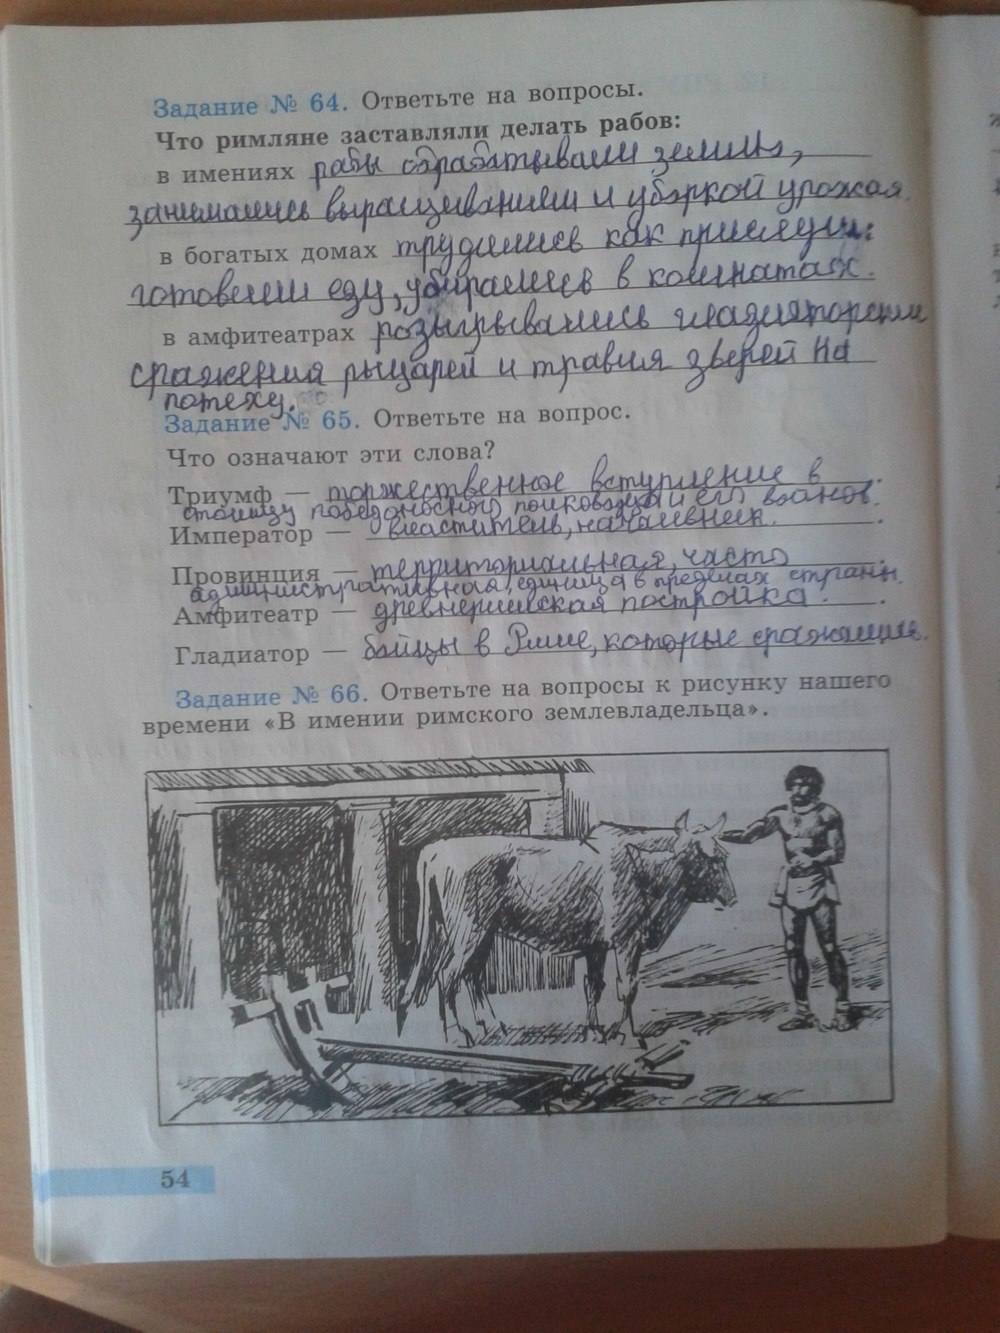 Задание № 64. Ответьте на вопросы.
Что римляне заставляли делать рабов:
в имениях рабы обрабатывали землю,
занимались выращиванием и уборкой урожая.
в богатых домах трудились как прислуги:
готовили еду, убирались в комнатах.
в амфитеатрах розыгрывались гладияторские
сражения рыцарей и травля зверей на
потеху.
Задание № 65. Ответьте на вопрос.
Что означают эти слова?
Триумф — торжественное вступление в
столицу победоносного полководца и его воинов.
Император — властитель, начальник.
Провинция — территориальная, часто
административная, единица в пределах страны.
Амфитеатр — древнеримская постройка.
Гладиатор — бойцы в Риме, которые сражались.
Задание № 66. Ответьте на вопросы к рисунку нашего
времени «В имении римского землевладельца».
54